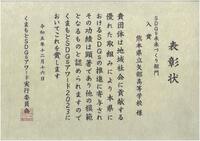 表彰状
SDGs未来づくり部門
入賞
熊本県立矢部高等学校 様
貴団体は地域社会に貢献する
優れた取組みにより本県に
おけるSDGsの推進に寄与され
その功績は顕著であり他の模範
となるものと認められますので
くまもとSDGsアワード2023に
おいてこれを賞します
令和五年十二月十六日
くまもとSDGsアワード実行委員会